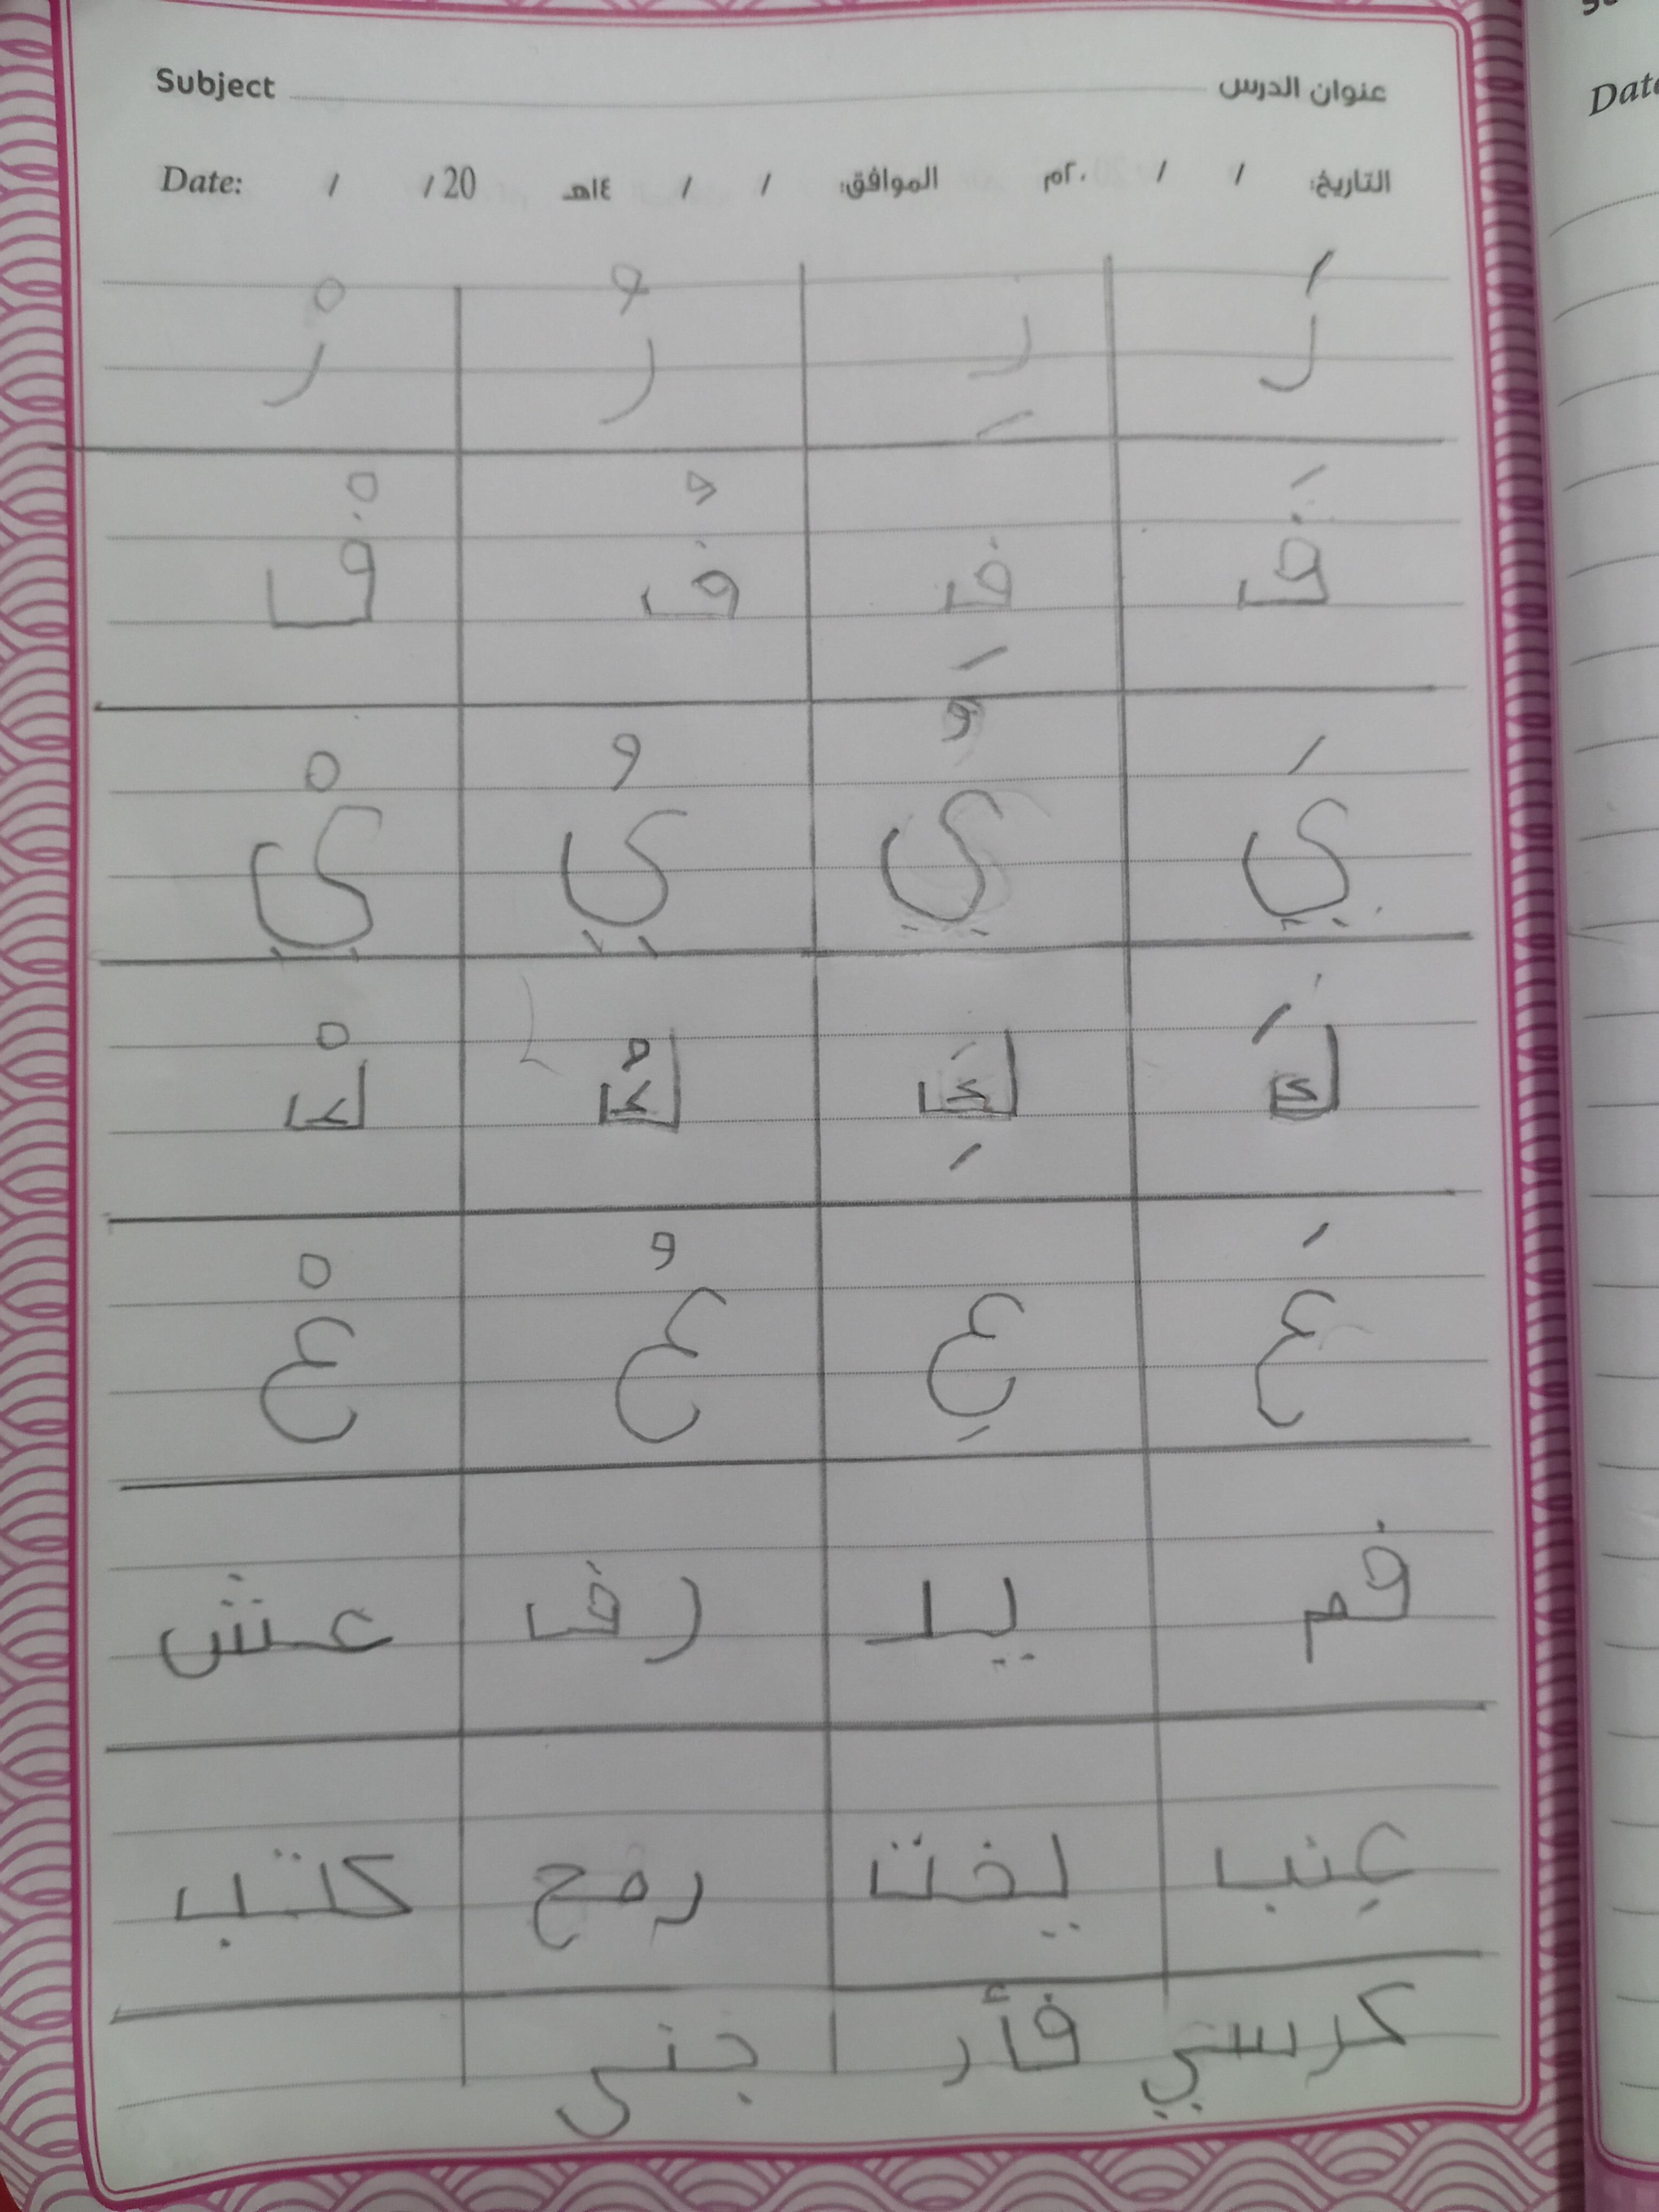 Subject عنوان الدرس
Date: / / 20 التاريخ: / / ٢٠م الموافق: / / ١٤هـ
رَ رِ رُ رْ
فَ فِ فُ فْ
يَ يُ يُ يْ
كَ كِ كُ كْ
عَ عِ عُ عْ
فم يد رف عش
عنب يخت رمح كتب
كرسي فأر جنى
Date